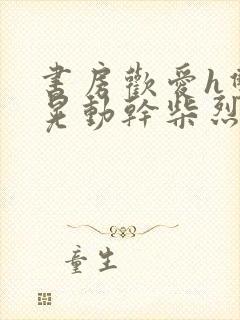 書房歡愛h
晃動幹柴烈
童生